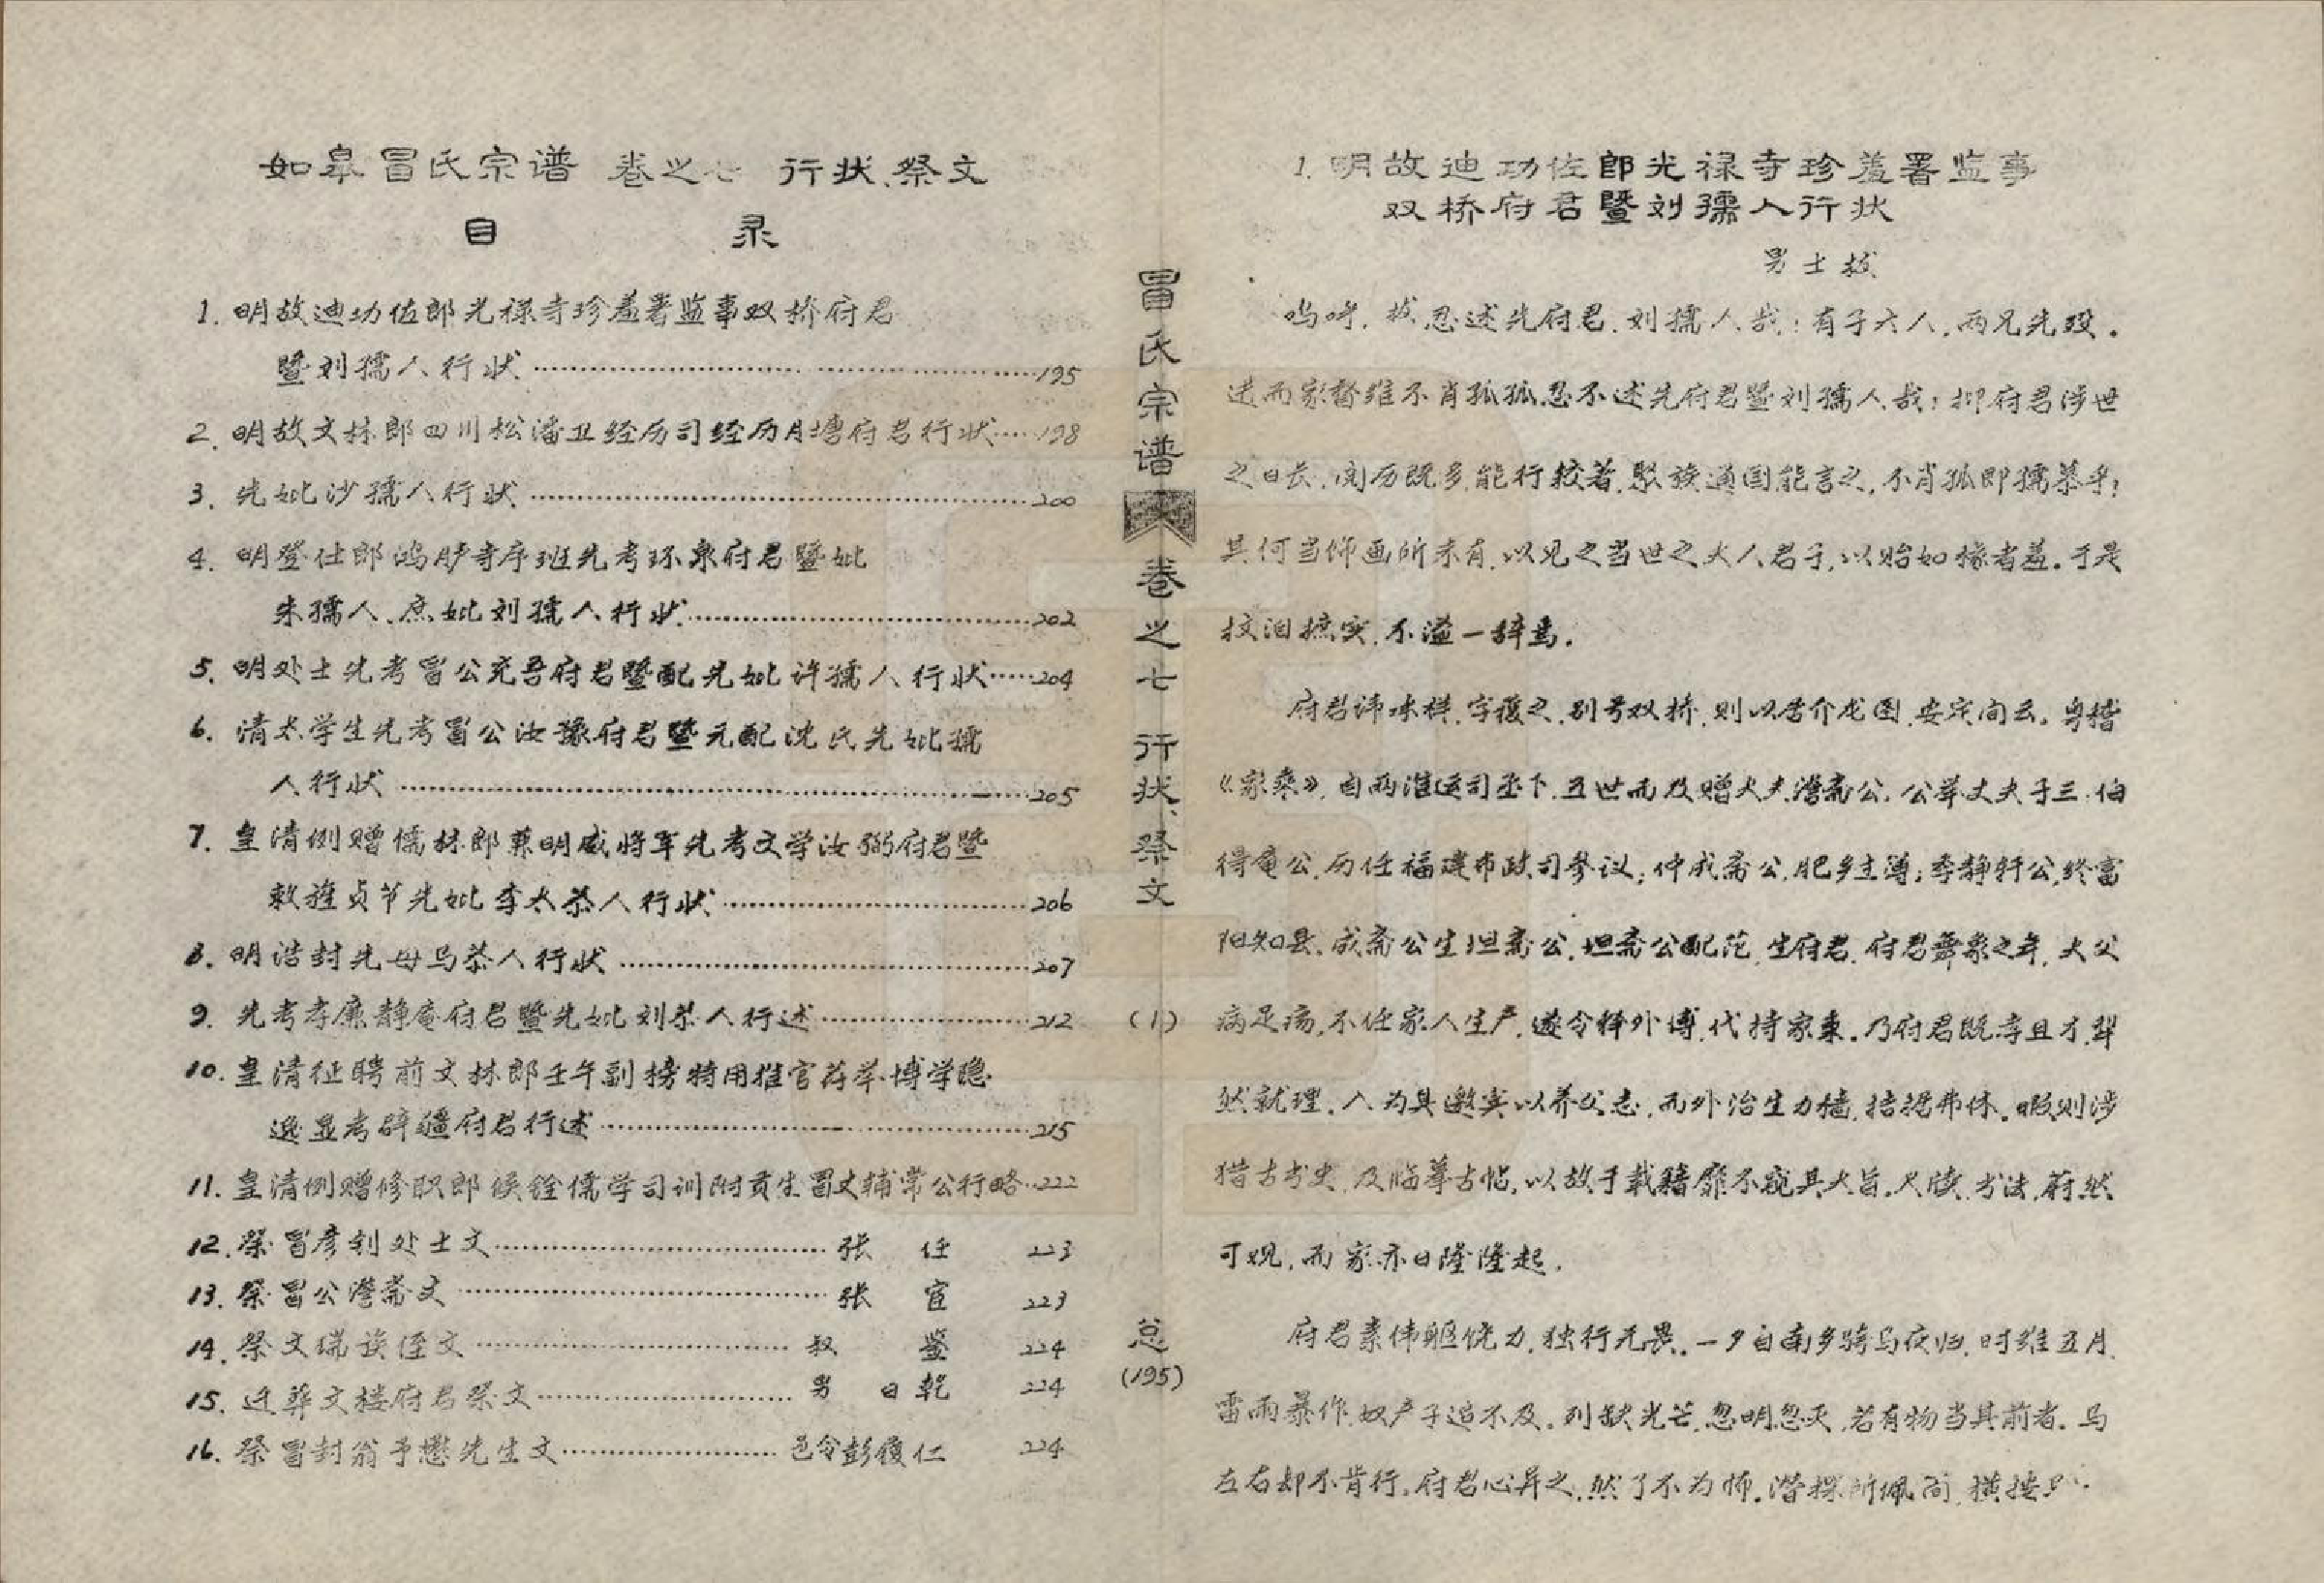 如皋冒氏宗谱 卷之七 行状、祭文
目 录
1. 明故迪功佐郎光禄寺珍羞署监事双桥府君
暨刘孺人行状……………………195
2. 明故文林郎四川松潘卫经历司经历月塘府君行状……198
3. 先妣沙孺人行状……………………200
4. 明登仕郎鸿胪寺序班先考环泉府君暨妣
朱孺人、庶妣刘孺人行状……………………202
5. 明处士先考冒公充吾府君暨配先妣许孺人行状……204
6. 清太学生先考冒公汝豫府君暨元配沈氏先妣孺
人行状……………………205
7. 皇清例赠儒林郎兼明威将军先考文学汝弼府君暨
敕旌贞节先妣李太恭人行状……………………206
8. 明诰封先母马恭人行状……………………207
9. 先考孝廉静庵府君暨先妣刘恭人行述……………………212
10. 皇清征聘前文林郎壬午副榜特用推官荐举博学隐
逸显考辟疆府君行述……………………215
11. 皇清例赠修职郎候铨儒学司训附贡生冒丈辅常公行略…222
12. 祭冒彦利处士文……………………张 任 223
13. 祭冒公澹斋文……………………张 宣 223
14. 祭文瑞族侄文……………………叔 鉴 224
15. 迁葬文楼府君祭文……………………男 日乾 224
16. 祭冒封翁予懋先生文……………………邑令彭履仁 224
冒氏宗谱 卷之七 行状、祭文
(1)
总
(195)
1. 明故迪功佐郎光禄寺珍羞署监事
双桥府君暨刘孺人行状
男士拔
呜呼,拔忍述先府君、刘孺人哉!有子六人,两兄先殁。
进而家督维不肖孤孤忍不述先府君暨刘孺人哉!抑府君涉世
之日长,阅历既多,能行较著,聚族通国能言之,不肖孤即孺慕乎!
其何当饰画所未有,以见之当世之大人君子,以贻如椽者羞。于是
抆泪摭实,不溢一辞焉。
府君讳承祥,字履之,别号双桥,则以居介龙图、安定间云。粤稽
《家乘》,自两淮运司丞下,五世而及赠大夫澹斋公,公举丈夫子三,伯
得庵公,历任福建布政司参议;仲成斋公,肥乡主簿;季静轩公,终富
阳知县。成斋公生坦斋公,坦斋公配范,生府君。府君舞象之年,大父
病足疡,不任家人生产,遂令释外傅,代持家秉。乃府君既孝且才,犁
然就理。入为具邀宾以养父志,而外治生力穑,拮据弗休。暇则涉
猎古书史,及临摹古帖,以故于载籍靡不窥其大旨。尺牍、书法,蔚然
可观,而家亦日隆隆起。
府君素伟躯饶力,独行无畏。一夕自南乡骑马夜归,时维五月,
雷雨暴作,奴产子追不及。列缺光芒,忽明忽灭,若有物当其前者。马
左右却不肯行。府君心异之,然了不为怖。潜探所佩